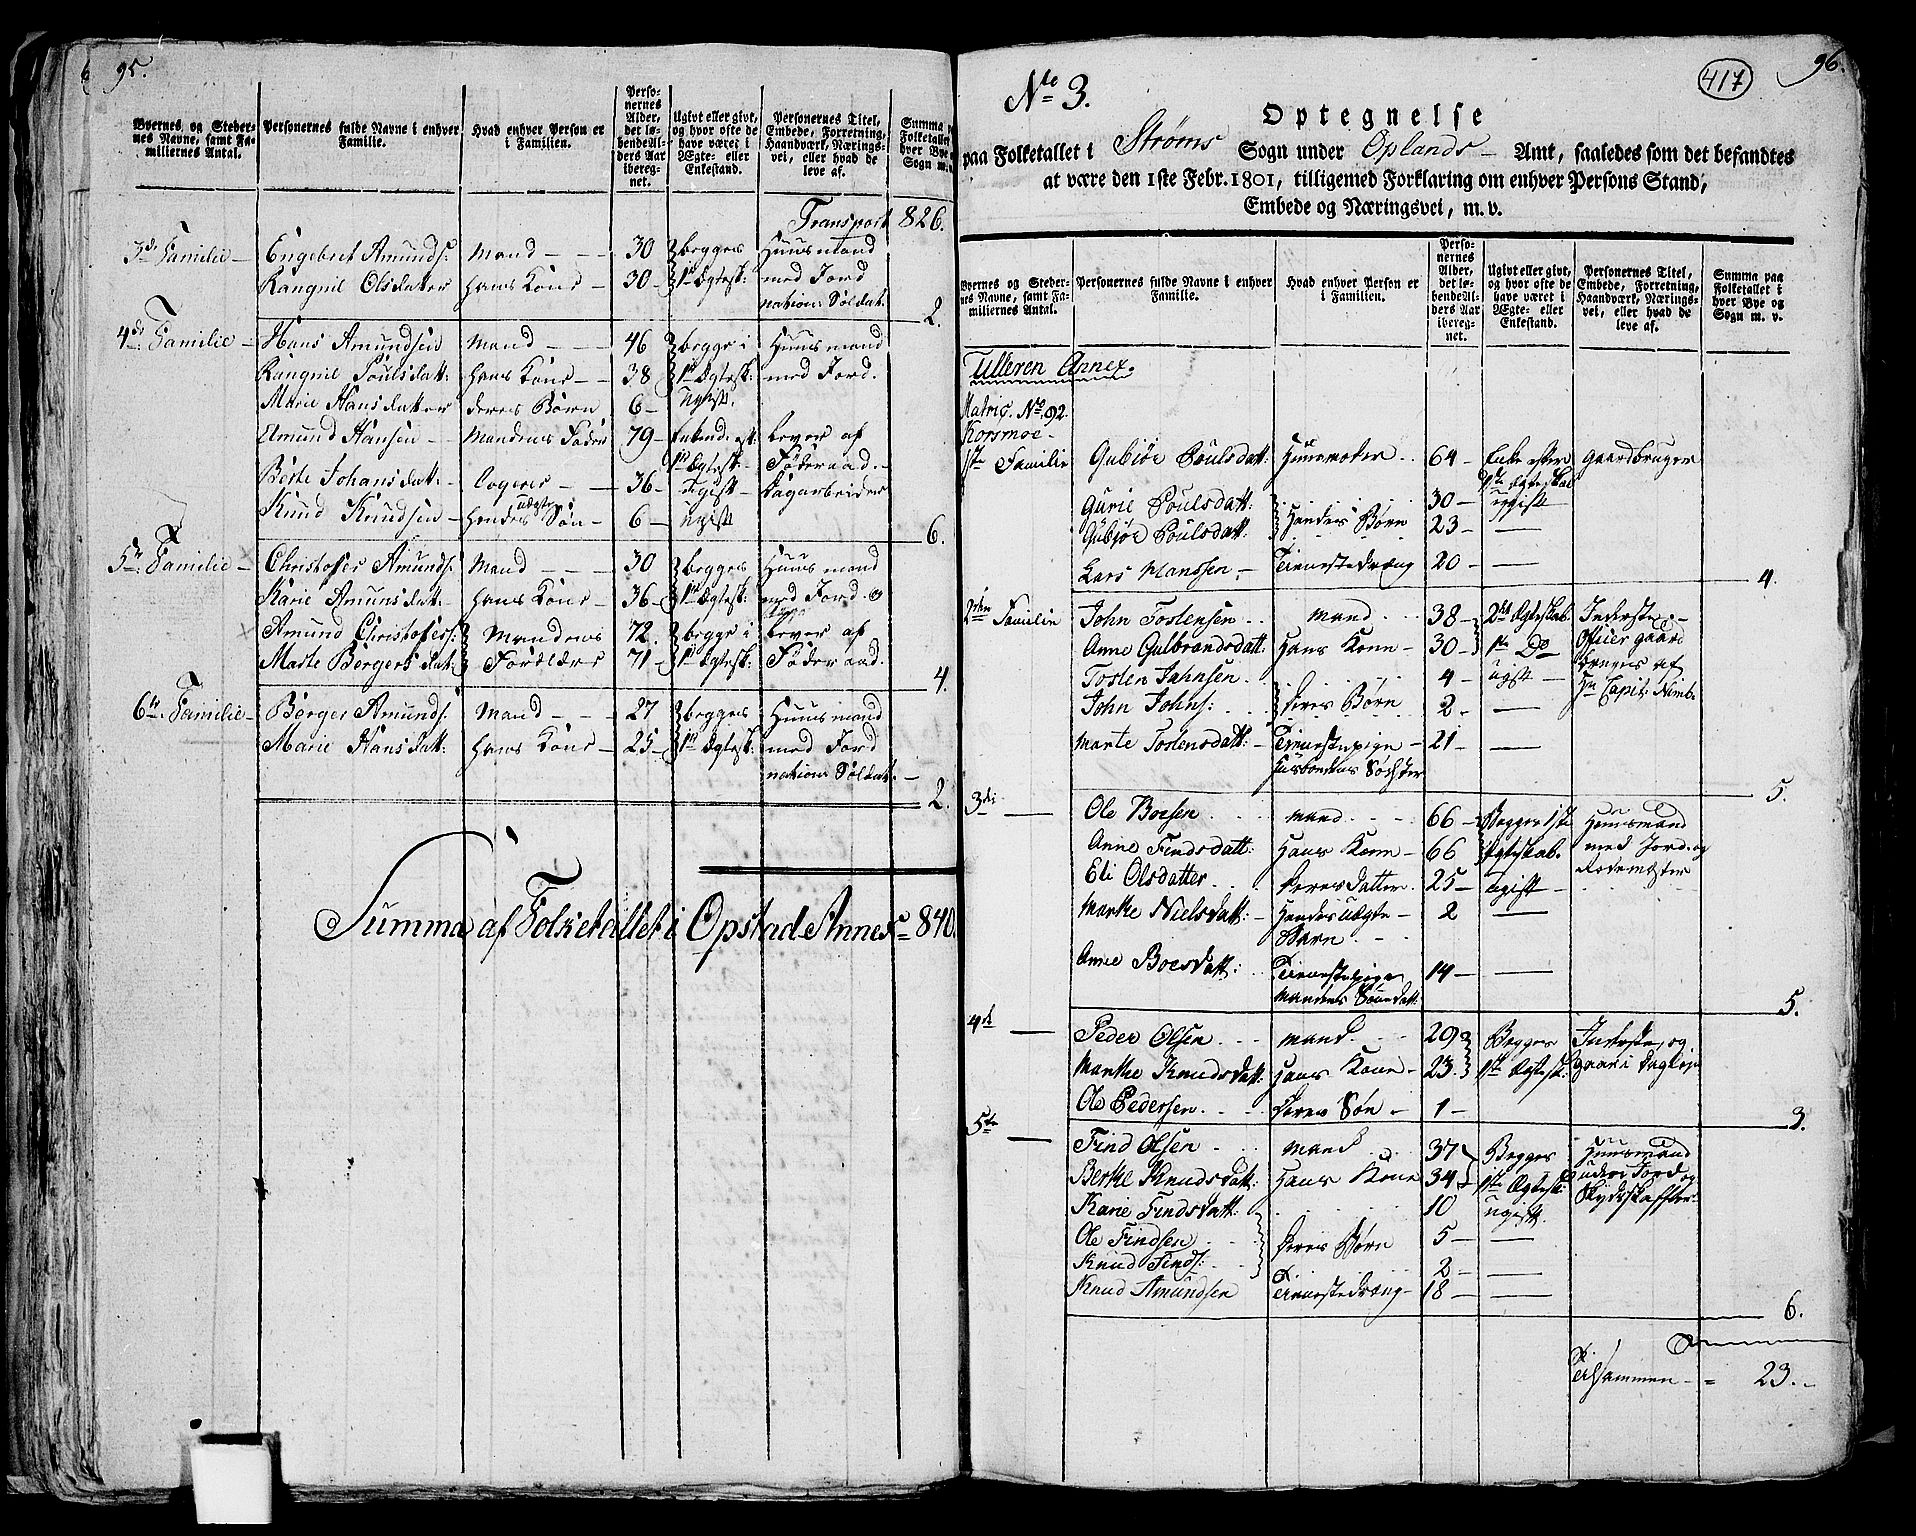 95.
Byernes og Steder-
nes Navne, samt Fa-
miliernes Antal.
Personernes fulde Navne i enhver
Familie.
Hvad enhver Person er
i Familien.
Perso-
nernes
Alder,
det lø-
bende Al-
ders Aar
iberegnet.
Ugivt eller givt,
og hvor ofte de
have været i
Ægte- eller
Enkestand.
Personernes Titel,
Embede, Forretning,
Haandværk, Nærings-
vei, eller hvad de
leve af.
Summa
Folketallet
hver Bye
Sogn m.
Transport 826.
3de Familie – Engebret Amunds: Mand – – – 30 begges Huusmand
Rangnil Olsdatter hans Kone – 30 1st Ægtesk: med Jord
nation: Soldat. 2.
4de Familie – Hans Amundsen Mand – – – 46 begge i Huusmand
Rangnil Poulsdatt: hans Kone – – 38 1st Ægtesk: med Jord.
Marie Hansdatter deres Børn 6 – ugift.
Amund Hansen – – Mandens Fader 79 – lever af
1st Ægtesk: – Føderaad. –
Berte Johansdatt: – logerer – – 36 – ugift – Dagarbeider
Knud Knudsen – hendes uægte Søn – 6 – ugift 6.
5te Familie – Christoffer Amunds: Mand – – – 30 begges Huusmand
Karie Amunsdatt: – hans Kone – 36 – 1st Ægtesk: med Jord.
Amund Christoffers: Mandens 72. begge i lever af
Marte Børgersdat: Forældre 71 – 1st Ægtesk: Føderaad. 4.
6te Familie – Børger Amunds: Mand – – – 27 begges Huusmand
Marie Hansdatt: hans Kone – 25 – 1st Ægtesk: med Jord
nation: Soldat. – 2.
Summa af Folketallet i Opstad Annex = 840.
96.
417
No 3.
Optegnelse
paa Folketallet i Strøms Sogn under Oplands – Amt, saaledes som det befandtes
at være den 1ste Febr. 1801, tilligemed Forklaring om enhver Persons Stand,
Embede og Næringsvei, m. v.
Byernes og Steder-
nes Navne, samt Fa-
miliernes Antal.
Personernes fulde Navne i enhver
Familie.
Hvad enhver Person er
i Familien.
Perso-
nernes
Alder,
det lø-
bende Al-
ders Aar
iberegnet.
Ugivt eller givt,
og hvor ofte de
have været i
Ægte- eller
Enkestand.
Personernes Titel,
Embede, Forretning,
Haandværk, Nærings-
vei, eller hvad de
leve af.
Summa paa
Folketallet i
hver Bye og
Sogn m. v.
Ulleren Annex.
Matric. No. 92.
Korsmoe –
1ste Familie Gubiør Poulsdatt: Huusmoder . . 64 – Enke efter gaardbruger
1ste Ægteskab
Gurie Poulsdatt: 30 – ugift
Gubjør Poulsdatt. Hendes Børn 23 – —
Lars Hanssen. – Tienestedræng 20 – — 4.
2den Familie John Tostensen . . mand . . . 38 – 2det Ægteskab Inderste –
Anne Gulbrandsdatt: Hans Kone – 30 – 1ste Do
Tosten Jahnsen . 4 – ugift – bruges af
John Johns: . . deres Børn 2 – — Hr Capit:
Marte Tostensdatt: – Tienestepige – 21 – —
Husbondens Søster 5.
3die — Ole Boesen . . . mand . . . 66 – Begge 1ste Huusmand
Anne Findsdatt: Hans Kone – 66 Ægteskab. med Jord og
Eli Olsdatter . . deres datter . 25 – ugift – Rodemester
Marthe Nielsdatt: – Hendes uægte – 2 —
Barn . – –
Anne Boesdatt: . . Tienestepige 14 – —
mandens Sønedatt: 5.
4de — Peder Olsen . . . mand . . . 29 Begges Inderste, og
Marthe Knudsdatt: Hans Kone – 23. 1ste Ægtesk: gaar i dagleje
Ole Pedersen . . . deres Søn – 1 – 3.
5te — Find Olsen . . . mand . . 37 Begges Huusmand
Berthe Knudsdatt: Hans Kone 34 1ste Ægtesk: uden Jord og
Karie Findsdatt: 10 ugift. Skydskaffer
Ole Findsen . . deres Børn 5 – —
Knud Finds: . . 2 – —
Knud Amundsen Tienestedræng – 18 – — 6.
Tilsammen – = 23. –